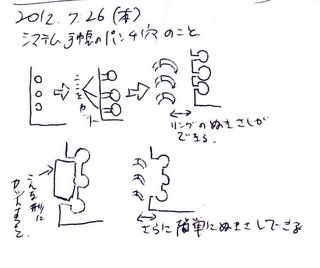 2012.7.26(木)
システム手帳のパンチ穴のこと
ここをカット
リングのぬきさしができる。
こんな形にカットすると
さらに簡単にぬきさしできる